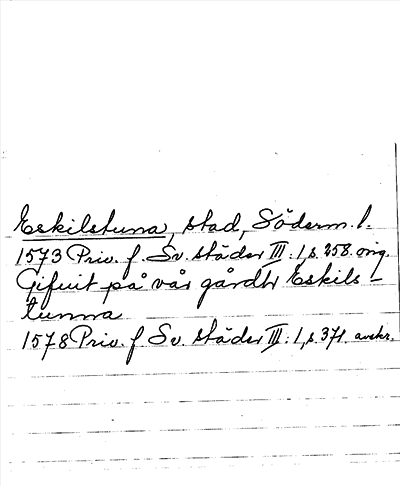 Eskilstuna, stad, Söderm. l.
1573 Priv. f. Sv. städer III: 1, s. 258. orig.
Gifuit på vår gårdh Eskils-
tunna
1578 Priv. f. Sv. städer III: 1, s. 371. avskr.